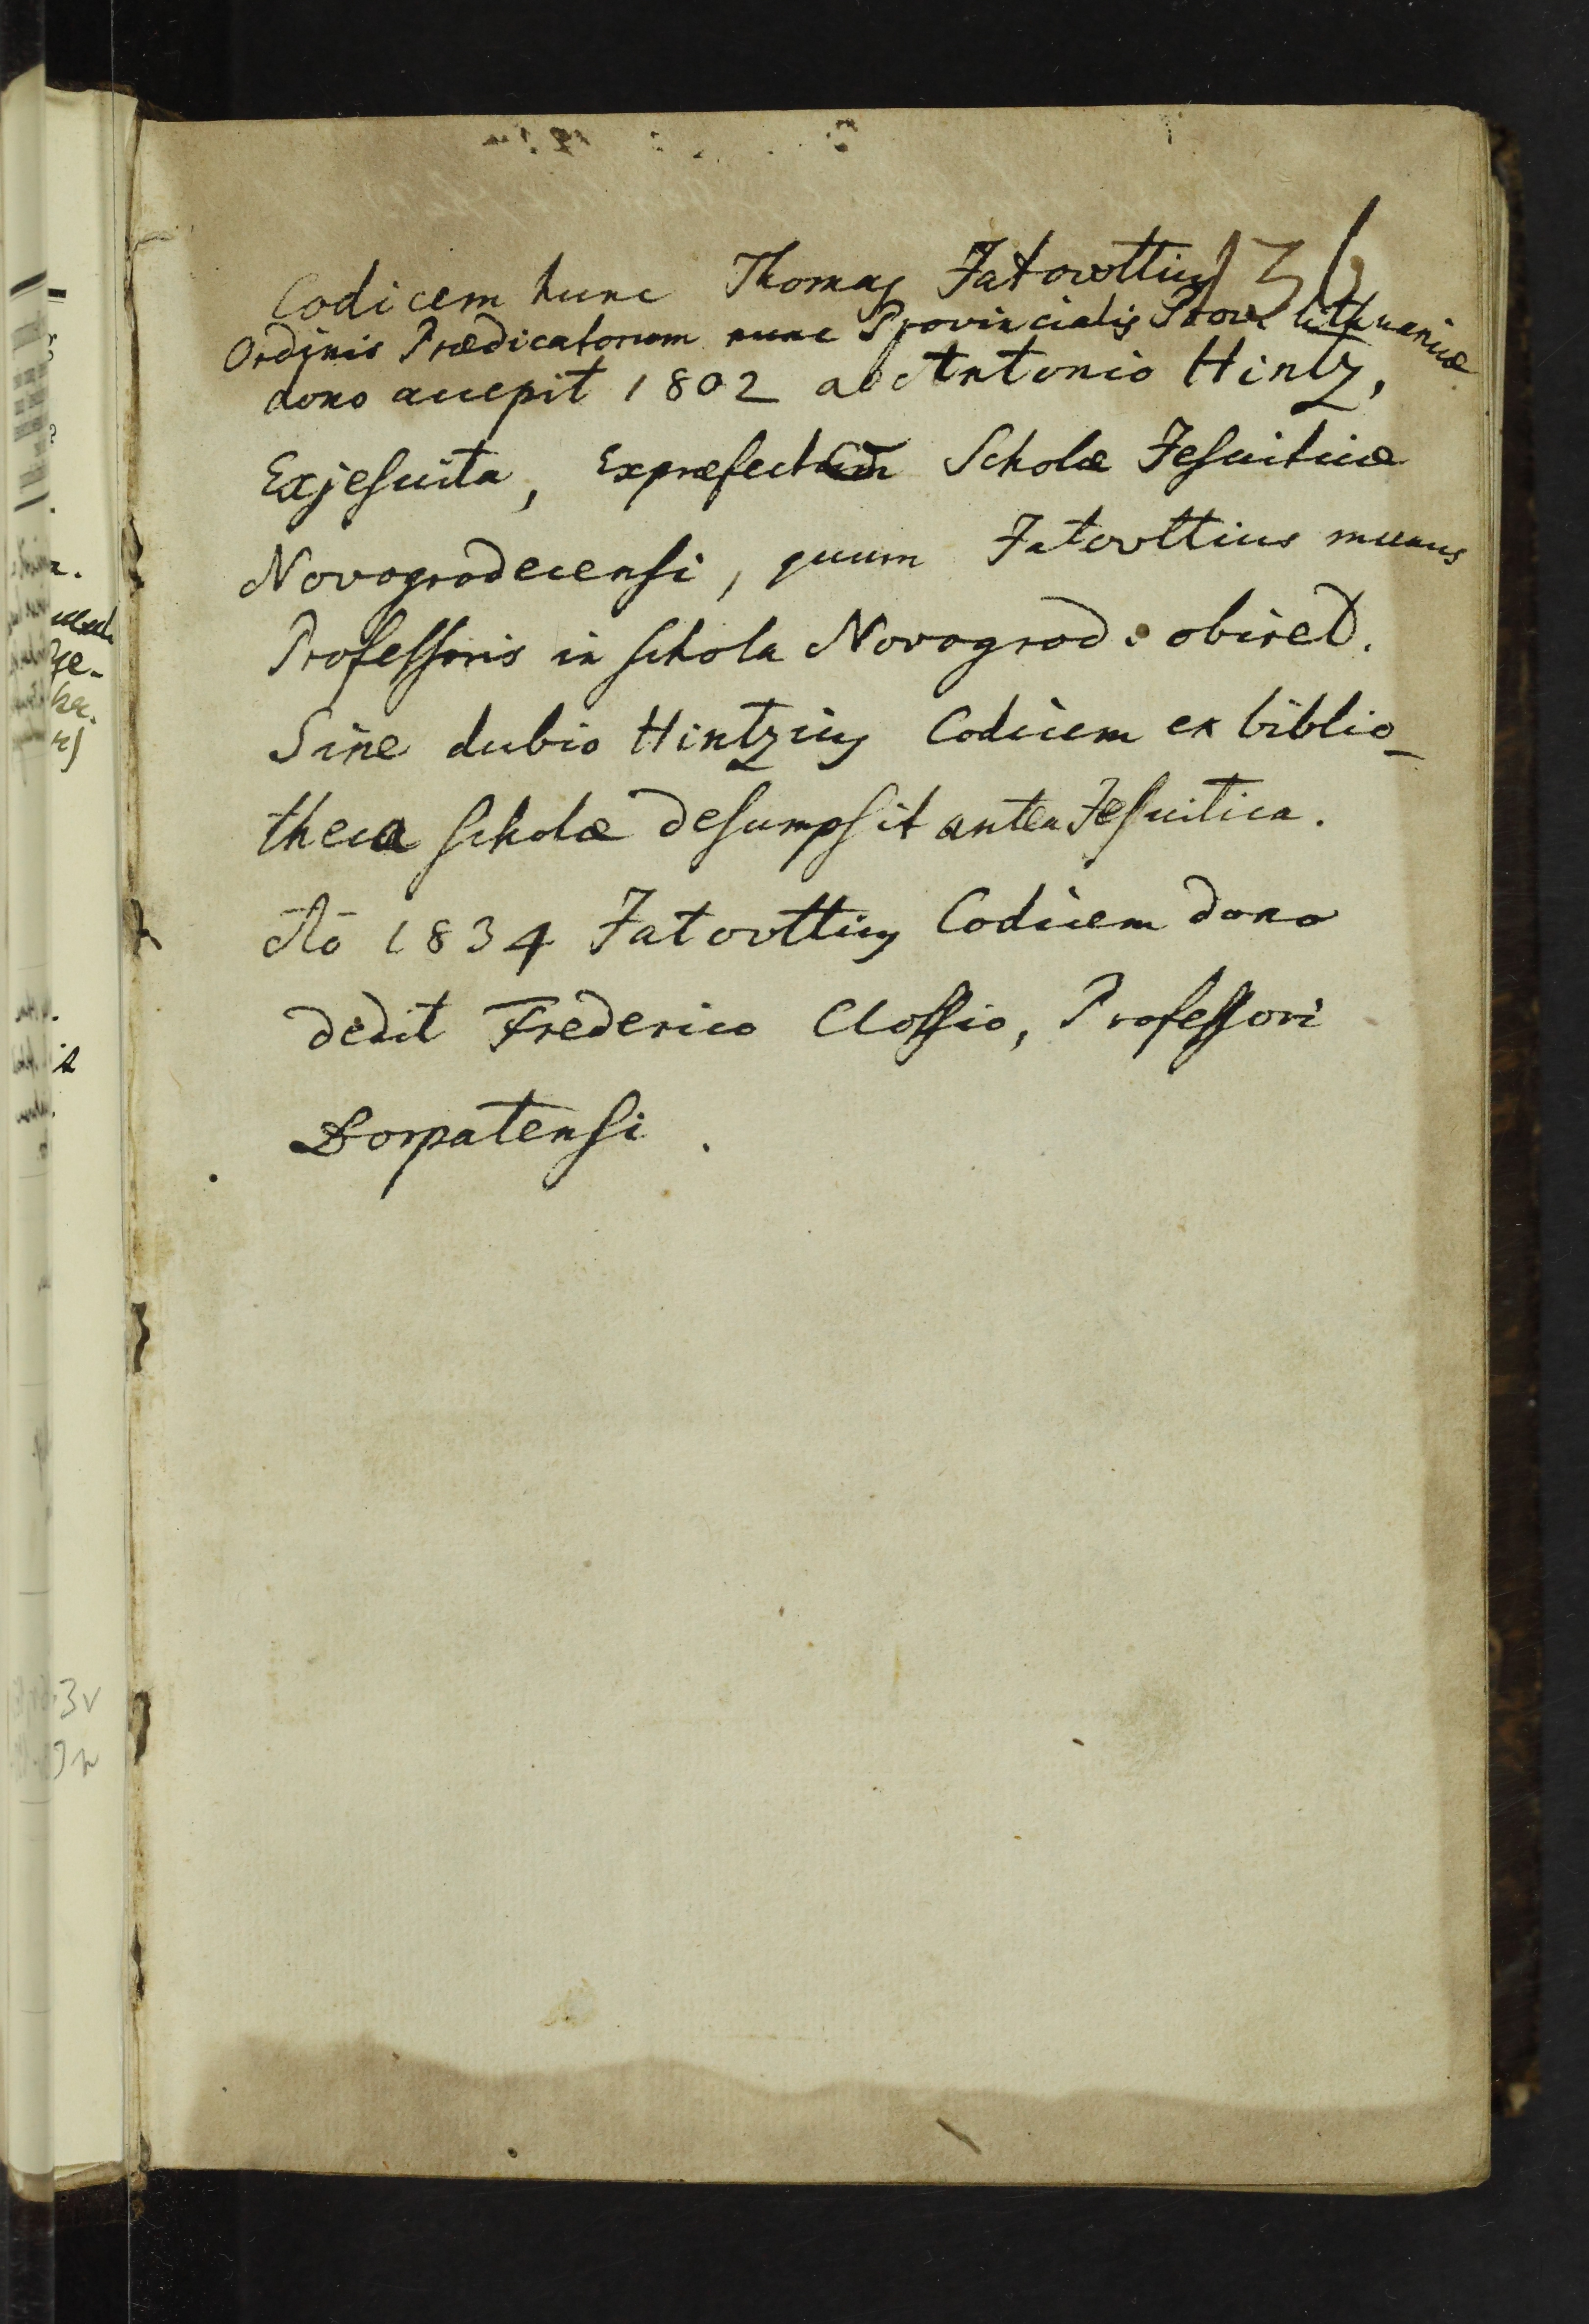 136
Codicem hunc Thomas Jatowttius
Ordinis Prædicatorum nunc Provincialis Prov. Lithuanicæ
dono accepit 1802 ab Antonio Hintz,
Exjesuita, Expræfecto Scholæ Jesuiticæ
Novogrodecensi, quum Jatovttius munus
Professoris in schola Novogrod: obiret.
Sine dubio Hintzius Codicem ex biblio_
theca scholæ desumpsit antea Jesuitica.
Aō 1834 Jatovttius Codicem dono
dedit Frederico Clossio, Professori
Dorpatensi.